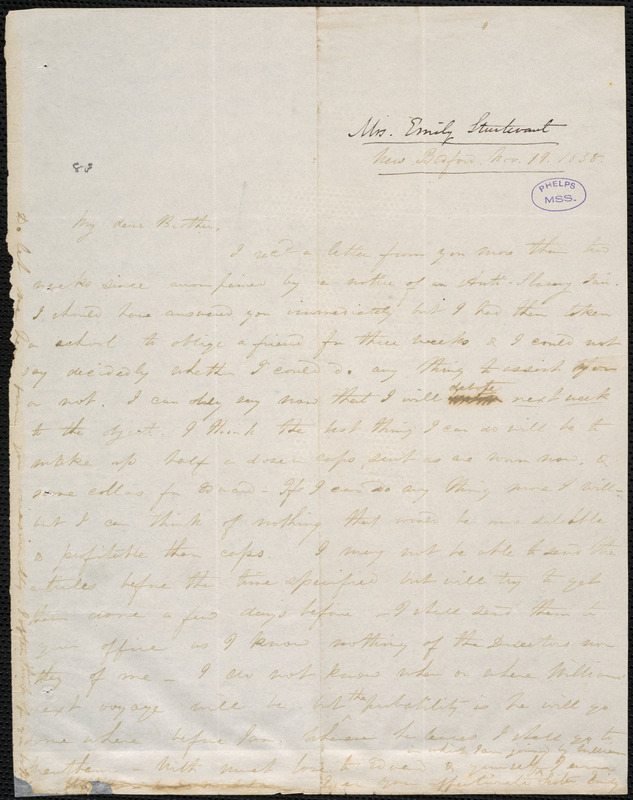 Mrs. Emily Sturtevant
New Bedford. Nov. 19. 1838.
PHELPS
MSS.
83
My dear Brother,
I recd a letter from you more than two
weeks since accompanied by a notice of an Anti-Slavery Fair.
I should have answered you immediately but I had then taken
a school to oblige a friend for three weeks & I could not
say decidedly whether I could do any thing to assist you
or not. I can only say now that I will devote next week
to the object. I think the best thing I can do will be to
make up half a dozen caps, such as are worn now, &
some collars for . If I can do any thing more I will
but I can think of nothing that would be more saleable
& profitable than caps. I may not be able to send the
articles before the time specified but will try to get
them done a few days before. I shall send them to
your office as I know nothing of the Directors nor
they of me. I do not know when or where William
next voyage will be but the probability is he will go
some where before Jan. he leaves I shall go to
. With much love to Edward & yourself in which I am joined by William
I am your affectionate sister Emily